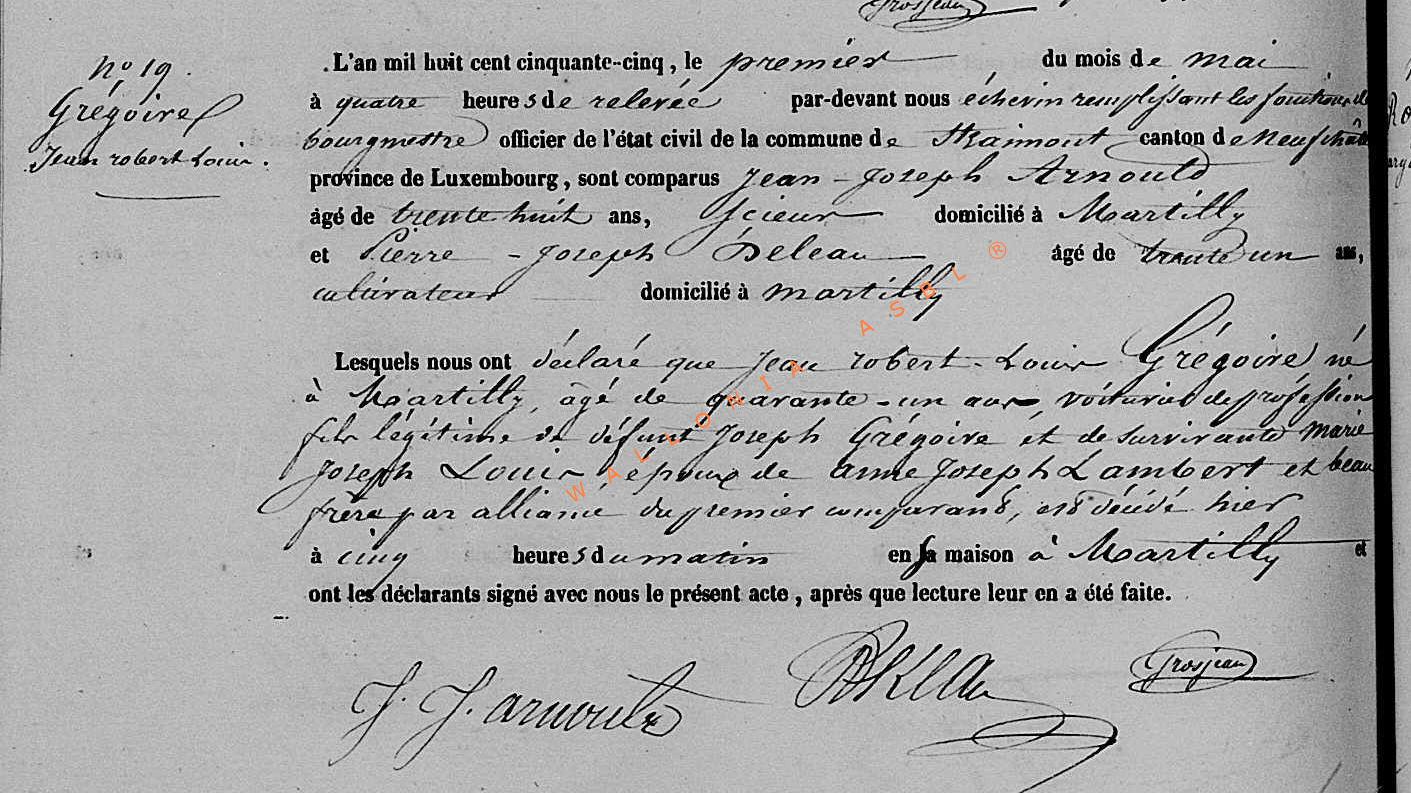 Grosjean
N° 19.
Grégoire
Jean robert Louis.
L'an mil huit cent cinquante-cinq, le premier du mois de mai
à quatre heures de relevée par-devant nous échevin remplissant les fonctions de
bourgmestre officier de l'état civil de la commune de Straimont canton de Neufchâte
province de Luxembourg, sont comparus Jean-Joseph Arnould
âgé de trente huit ans, Scieur domicilié à Martilly
et Pierre-Joseph Deleau âgé de trente un ans,
cultivateur domicilié à martilly
Lesquels nous ont déclaré que Jean robert-Louis Grégoire, né
à Martilly, âgé de quarante-un ans, voiturier de profession
fils légitime de défunt Joseph Grégoire et de survivante marie
Joseph Louis, époux de anne Joseph Lambert et beau
frère par alliance du premier comparant, est décédé hier
à cinq heures du matin en sa maison à Martilly et
ont les déclarants signé avec nous le présent acte, après que lecture leur en a été faite.
J. J. arnould
Grosjean
WALLONIA ASBL ®